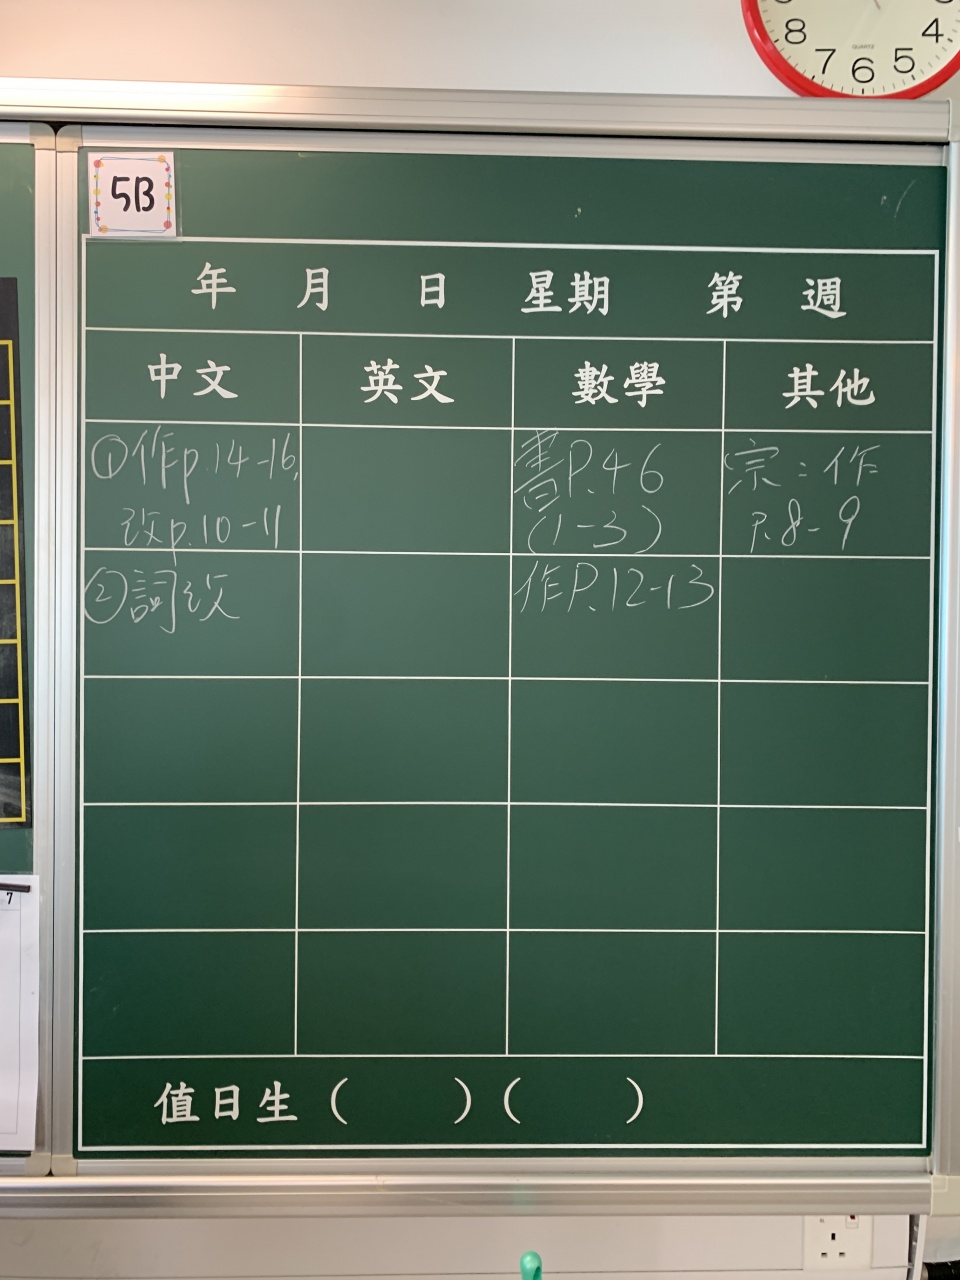 8 7 6 5 4
QUARTZ
5B
年 月 日 星期 第 週
中文 英文 數學 其他
①作p.14-16,
改p.10-11
書P.46
(1-3)
宗:作
P.8-9
②詞改
作P.12-13
7
值日生 ( ) ( )